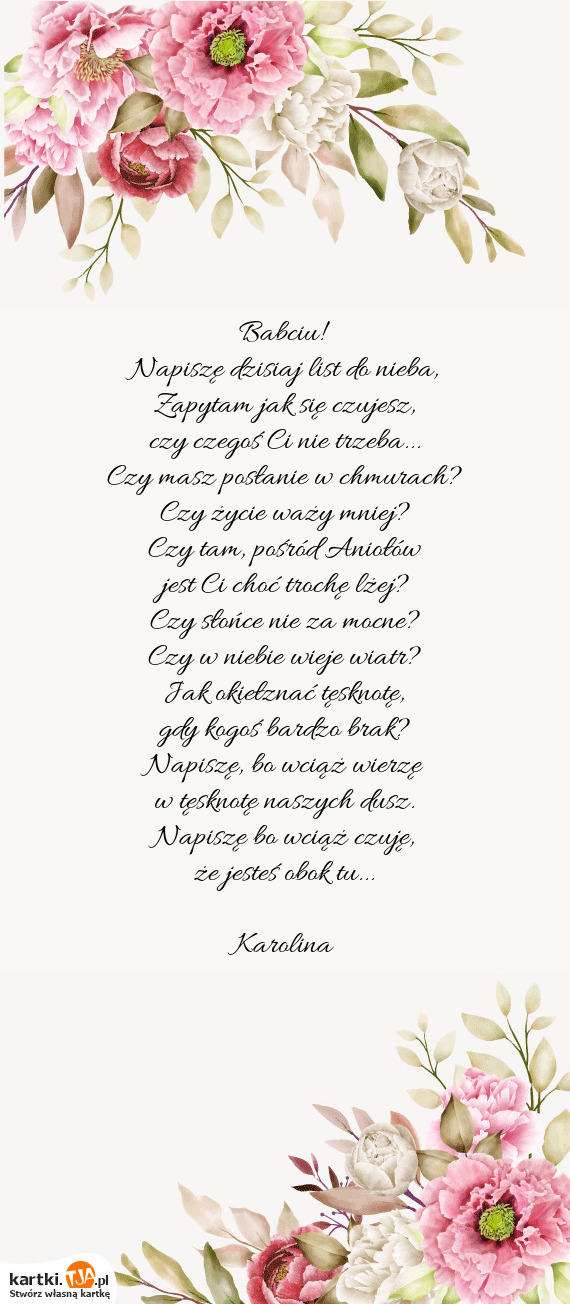 Babciu!
Napiszę dzisiaj list do nieba,
Zapytam jak się czujesz,
czy czegoś Ci nie trzeba...
Czy masz posłanie w chmurach?
Czy życie waży mniej?
Czy tam, pośród Aniołów
jest Ci choć trochę lżej?
Czy słońce nie za mocne?
Czy w niebie wieje wiatr?
Jak okiełznać tęsknotę,
gdy kogoś bardzo brak?
Napiszę, bo wciąż wierzę
w tęsknotę naszych dusz.
Napiszę bo wciąż czuję,
że jesteś obok tu...
Karolina
kartki.TJA.pl
Stwórz własną kartkę